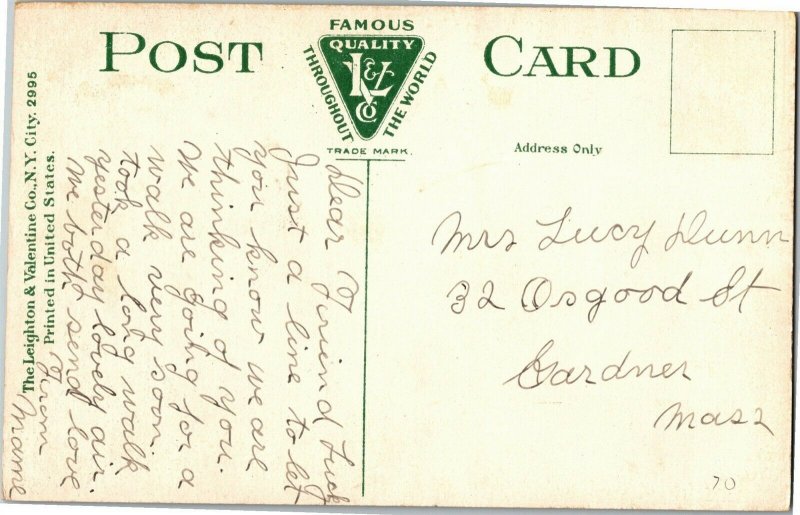 POST CARD
FAMOUS
QUALITY
THROUGHOUT THE WORLD
L&V
Co
TRADE MARK.
Address Only
The Leighton & Valentine Co., N.Y. City. 2995
Printed in United States.
Dear Friend Luck
Just a line to let
you know we are
thinking of you.
We are going for a
walk very soon.
took a long walk
yesterday lovely air.
We both send love
From
Mame
Mrs Lucy Dunn
32 Osgood St
Gardner
Mass
70